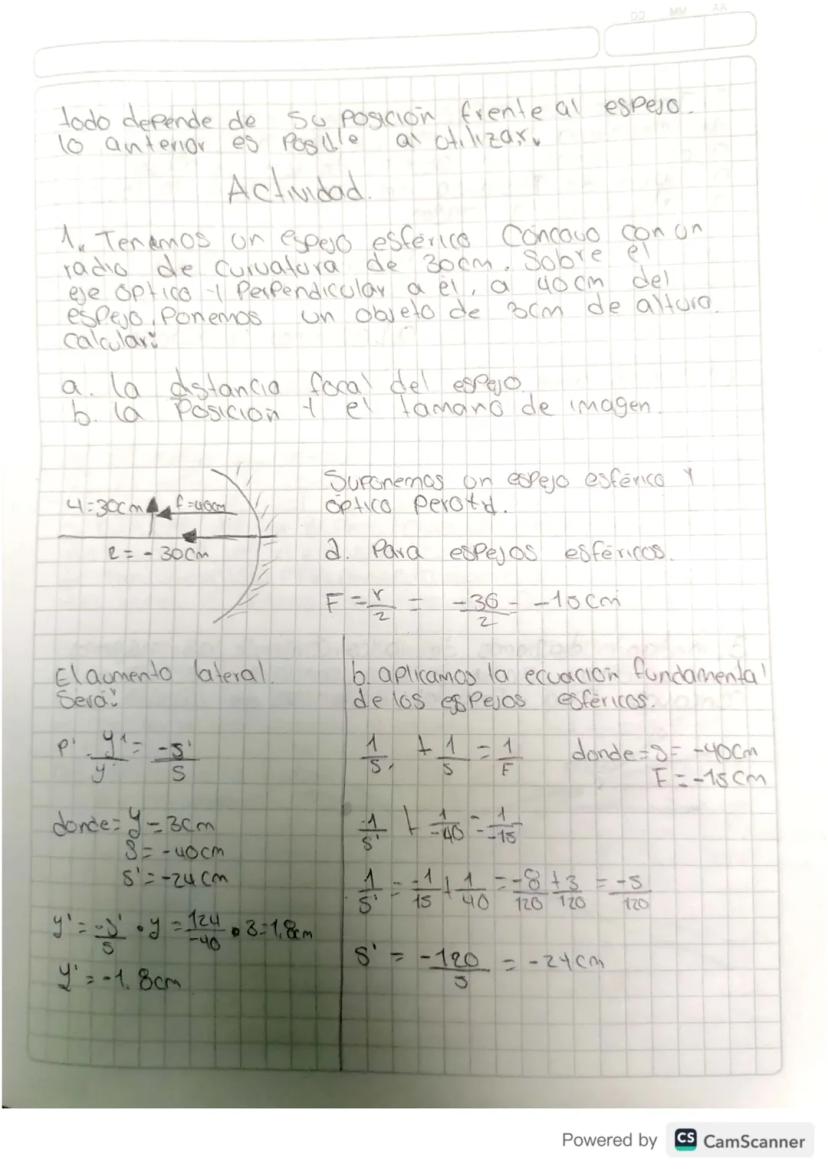 DD MM AA
todo depende de su posición frente al espejo.
lo anterior es posible al utilizar.
Actividad.
1. Tenemos un espejo esférico Concavo con un
radio de curvatura de 30cm. Sobre el
eje óptico y Perpendicular a él, a 40cm del
espejo, Ponemos un objeto de 3cm de altura.
calcular:
a. la distancia focal del espejo
b. la Posicion y el tamano de imagen.
Suponemos un espejo esférico y
óptico
=30cm
= - 30cm
a. Para espejos esféricos.
F = r/2 = -30/2 = -15cm
El aumento lateral
Será:
y'/y = -s'/s
donde= y = 3cm
S = -40cm
s' = -24cm
y' = -s'/s • y = 124/-40 • 3=1,8cm
y' = -1,8cm
b. aplicamos la ecuación fundamental
de los espejos esféricos.
1/s, + 1/s = 1/F donde = s = -40cm
F = -15cm
-1/s' + 1/-40 = 1/-15
1/s' = -1/15 + 1/40 = -8/120 + 3/120 = -5/120
s' = -120/5 = -24cm
Powered by CS CamScanner